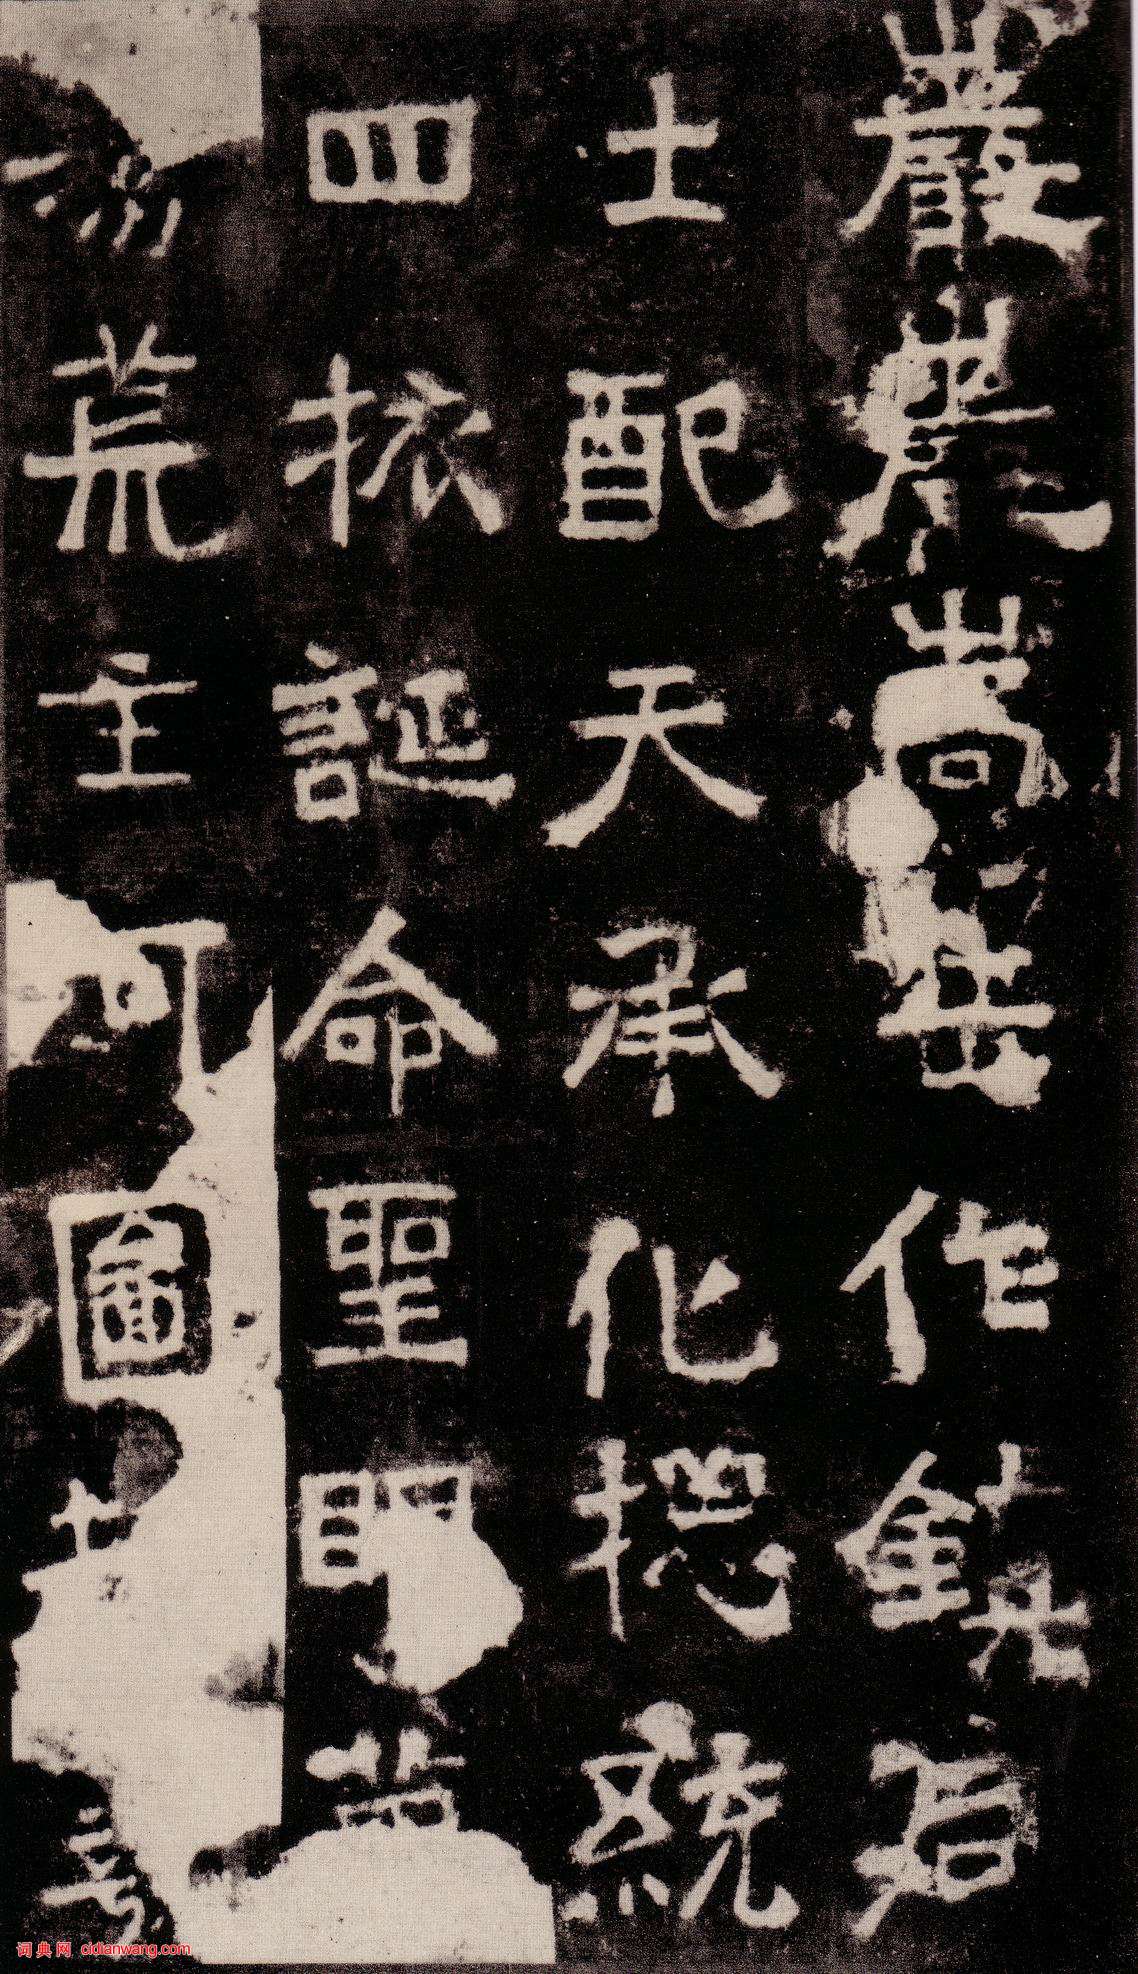 巖巖嵩岳作鎮后
土配天承化揔統
四振誕命聖明萬
荒主可圖
词典网 cidianwang.com